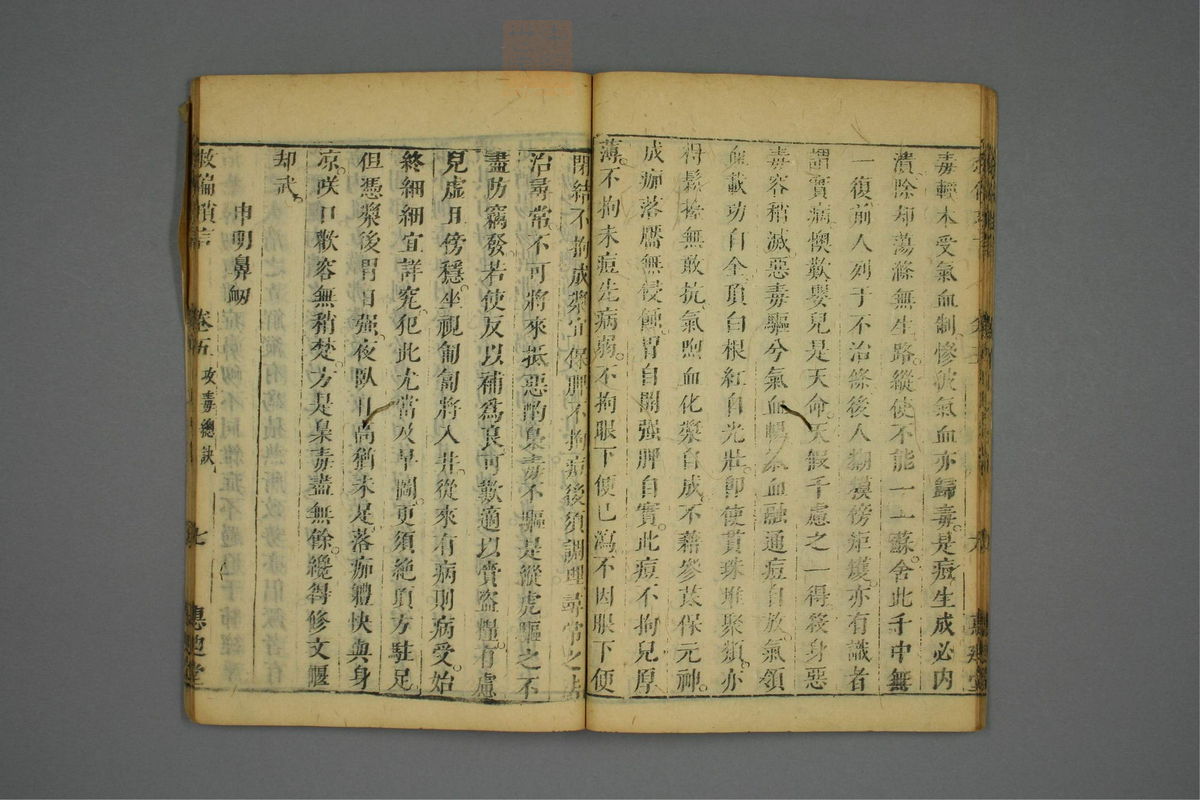 毒輕木受氣血制慘彼氣血亦歸毒是痘生成必內
潰除却蕩滌無生路縱使不能一一蘇舍此手中無
一復前人列于不治條後人糊模傍矩矱亦有識者
謂實病懊歎嬰兒是天命天假千慮之一得後身惡
毒容稍滅惡毒驅兮氣血暢氣血融通痘自放氣領
血載功自全頂白根紅自光壯即使貫珠堆聚類亦
得鬆搼無敢抗氣煦血化漿自成不藉參芪保元神
成痂落靨無侵蝕胃自開强脾自實此痘不拘兒厚
薄不拘未痘先病弱不拘眼下便已瀉不因眼下便
閉結不拘成漿宜保脾不拘痘後須調理尋常之
治尋常不可將來抵惡酌梟毒不驅是縱虎驅之不
盡防竊發若使反以補為良可歎適以賚盜糧有慮
兒虛且傍穩坐視匍匐將入井從來有病則病受始
終細細宜詳究犯此尤當及早圖更須絶頂方駐足
但憑漿後胃日强夜臥且尚猶未是落痂軆快與身
凉咲口歡容無稍楚方是梟毒盡無餘纔得修文偃
却武
申明鼻衂
救偏瑣言 卷五 攻毒總訣 七 惠迪堂